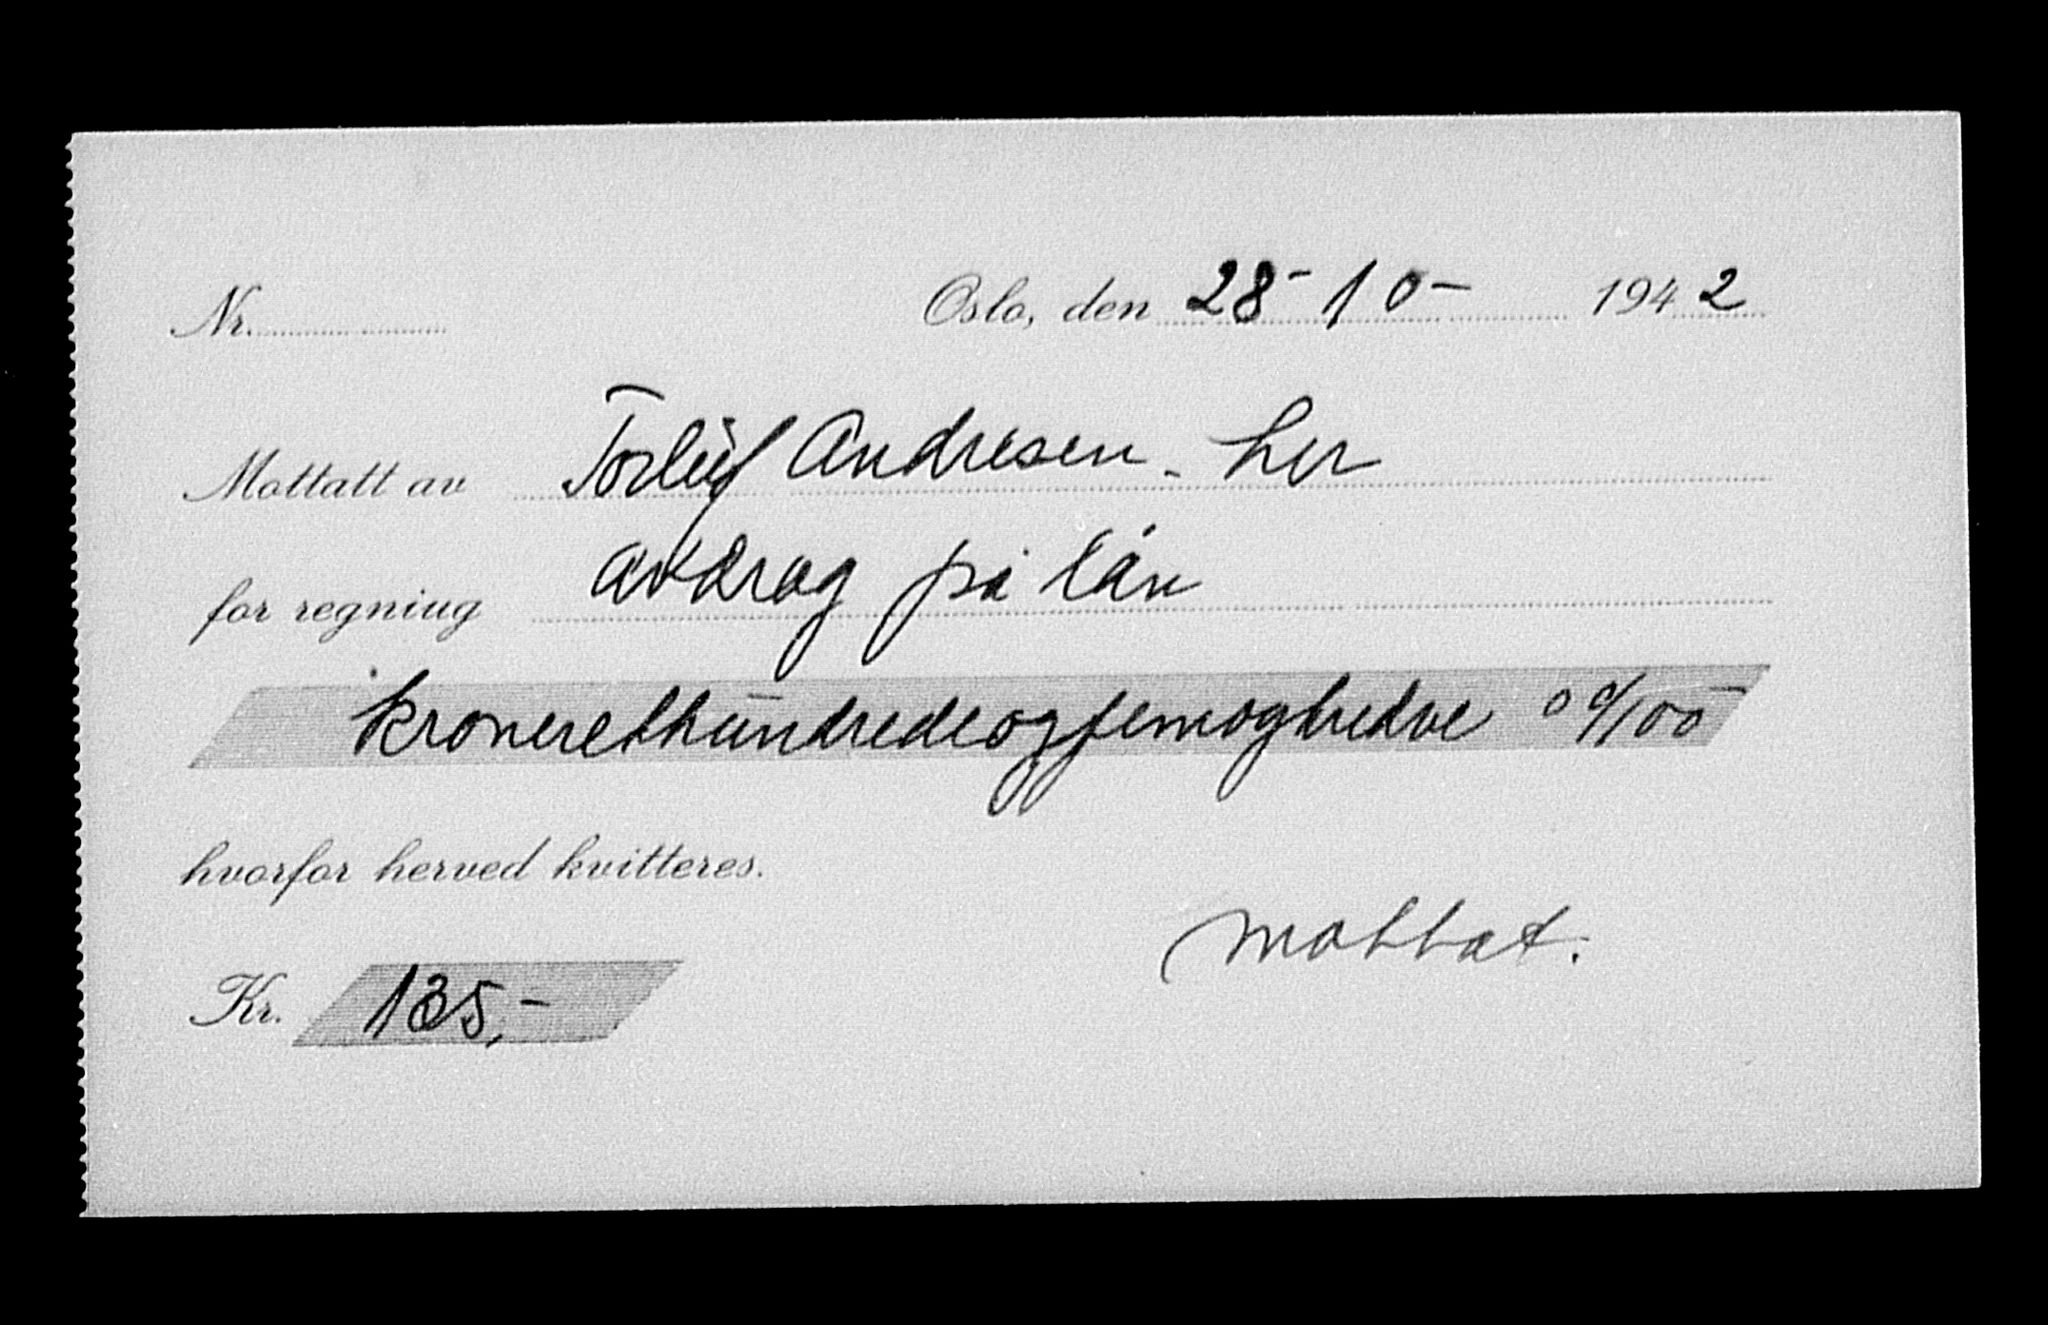 Nr.
Oslo, den 28-10- 1942
Mottatt av Torleif Andresen - her
for regning avdrag på lån
kroneretthundredeogfemogtredve 00/100
hvorfor herved kvitteres.
mottat.
Kr. 135,-